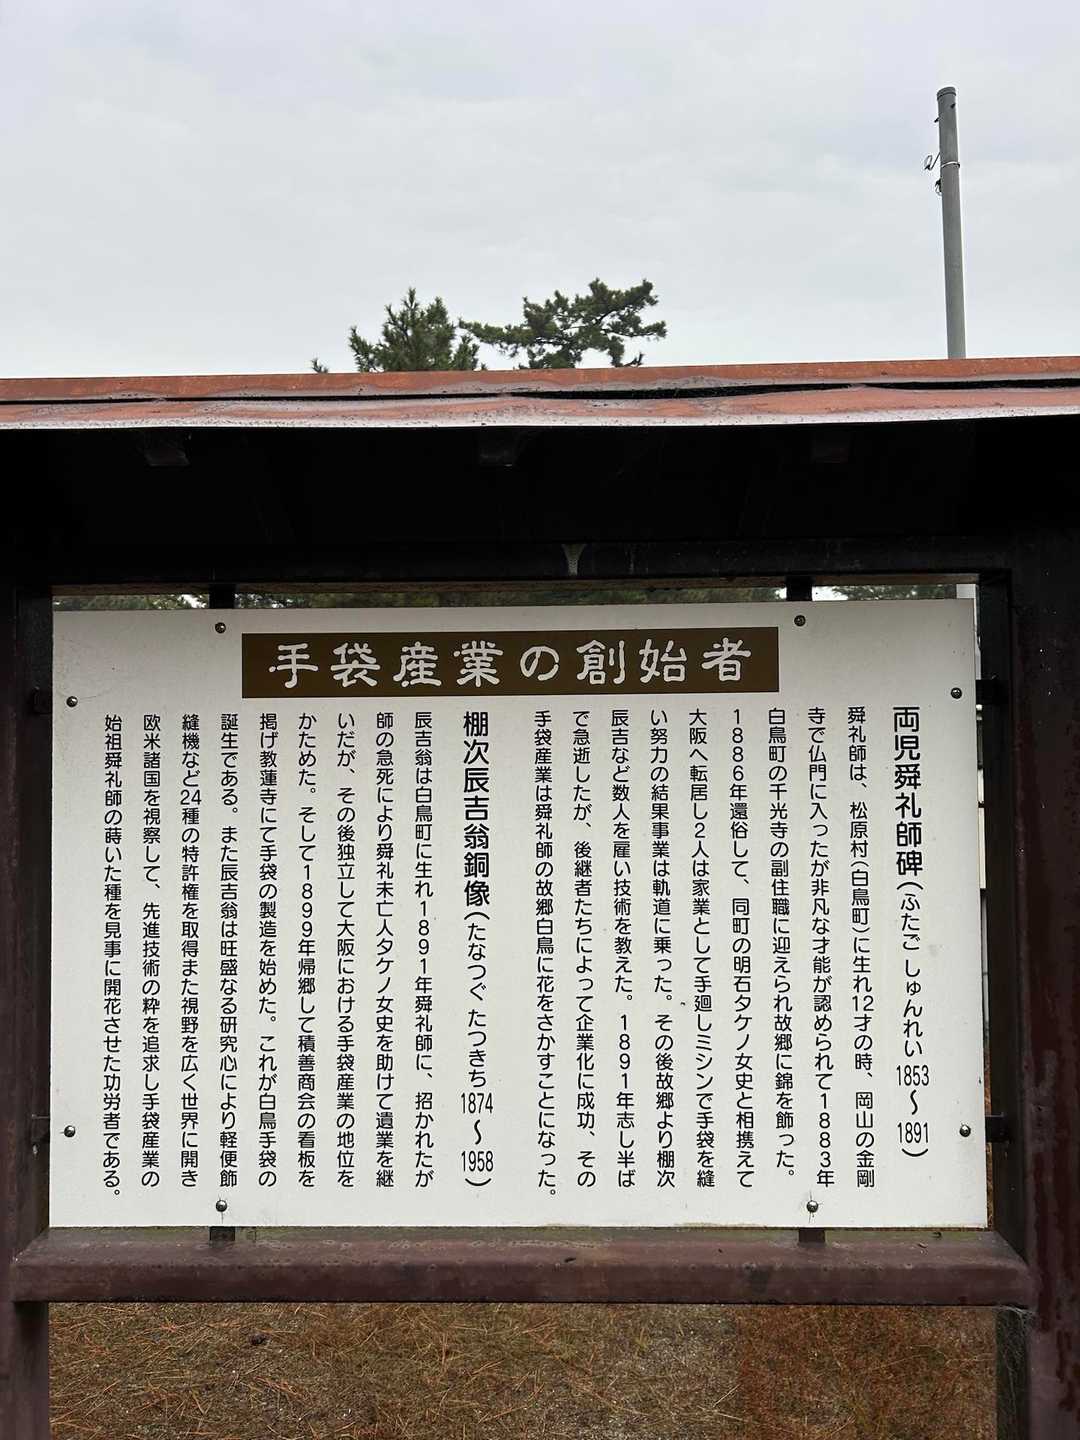 手袋産業の創始者
両児舜礼師碑(ふたご しゅんれい 1853〜1891)
舜礼師は、松原村(白鳥町)に生れ12才の時、岡山の金剛
寺で仏門に入ったが非凡な才能が認められて1883年
白鳥町の千光寺の副住職に迎えられ故郷に錦を飾った。
1886年還俗して、同町の明石タケノ女史と相携えて
大阪へ転居し2人は家業として手廻しミシンで手袋を縫
い努力の結果事業は軌道に乗った。その後故郷より棚次
辰吉など数人を雇い技術を教えた。1891年志し半ば
で急逝したが、後継者たちによって企業化に成功、その
手袋産業は舜礼師の故郷白鳥に花をさかすことになった。
棚次辰吉翁銅像(たなつぐ たつきち 1874〜1958)
辰吉翁は白鳥町に生れ1891年舜礼師に、招かれたが
師の急死により舜礼未亡人タケノ女史を助けて遺業を継
いだが、その後独立して大阪における手袋産業の地位を
かためた。そして1899年帰郷して積善商会の看板を
掲げ教蓮寺にて手袋の製造を始めた。これが白鳥手袋の
誕生である。また辰吉翁は旺盛なる研究心により軽便飾
縫機など24種の特許権を取得また視野を広く世界に開き
欧米諸国を視察して、先進技術の粋を追求し手袋産業の
始祖舜礼師の蒔いた種を見事に開花させた功労者である。